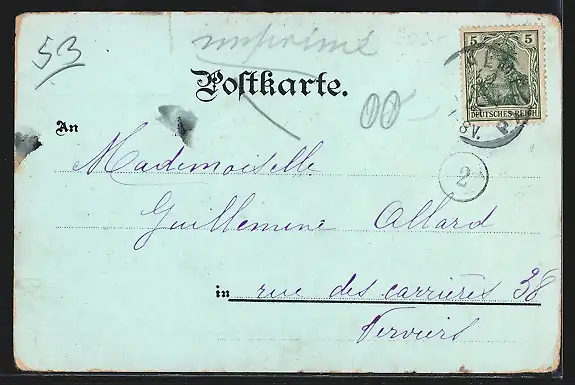 53
imprimé
Postkarte.
00
5 5
DEUTSCHES REICH
8V.
An
Mademoiselle
2
Guillemine Allard
in rue des carrières 38
Verviers